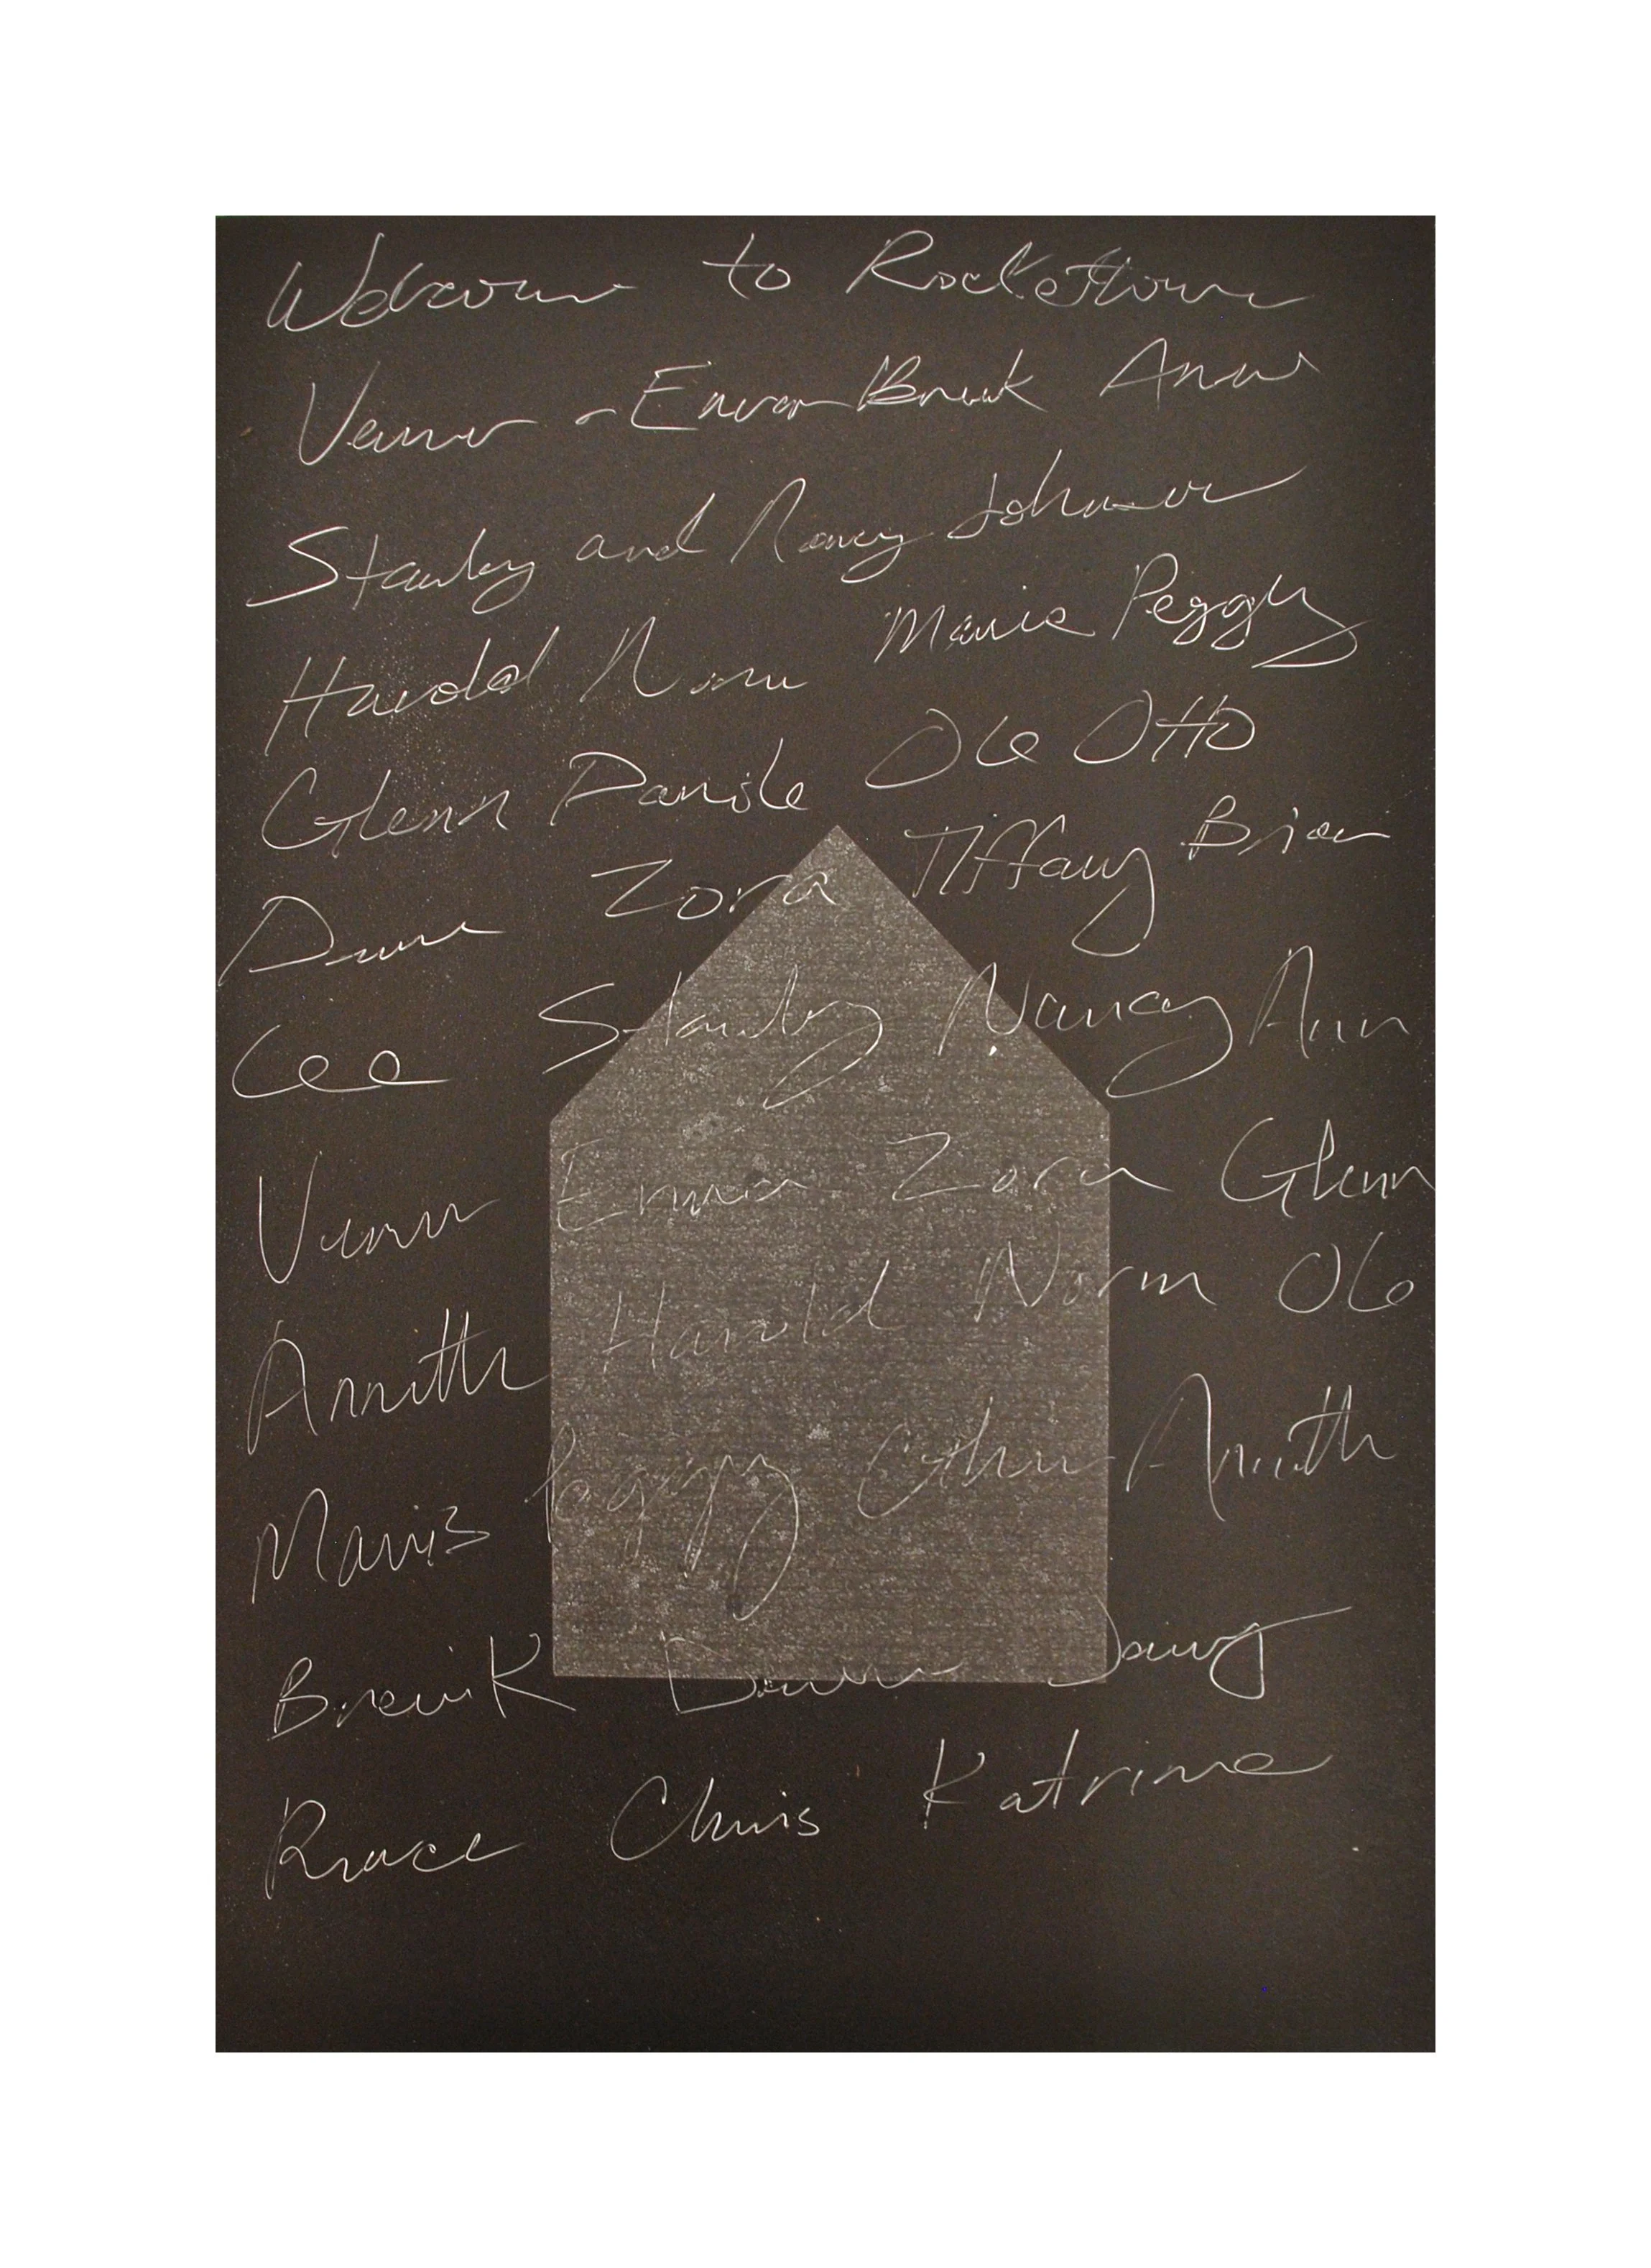 Welcome to Rockettown
Verner - Emma Breuk Anna
Stanley and Nancy Johnson
Harold Norm Mavis Peggy
Glenn Ole Otto
Dawn Zora Tiffany Brian
Lee Stanley Nancy Ann
Vernr Emma Zora Glenn
Annette Harold Norm Ole
Mavis Peggy Annette
Breuik Dawn Doug
Bruce Chris Katrine